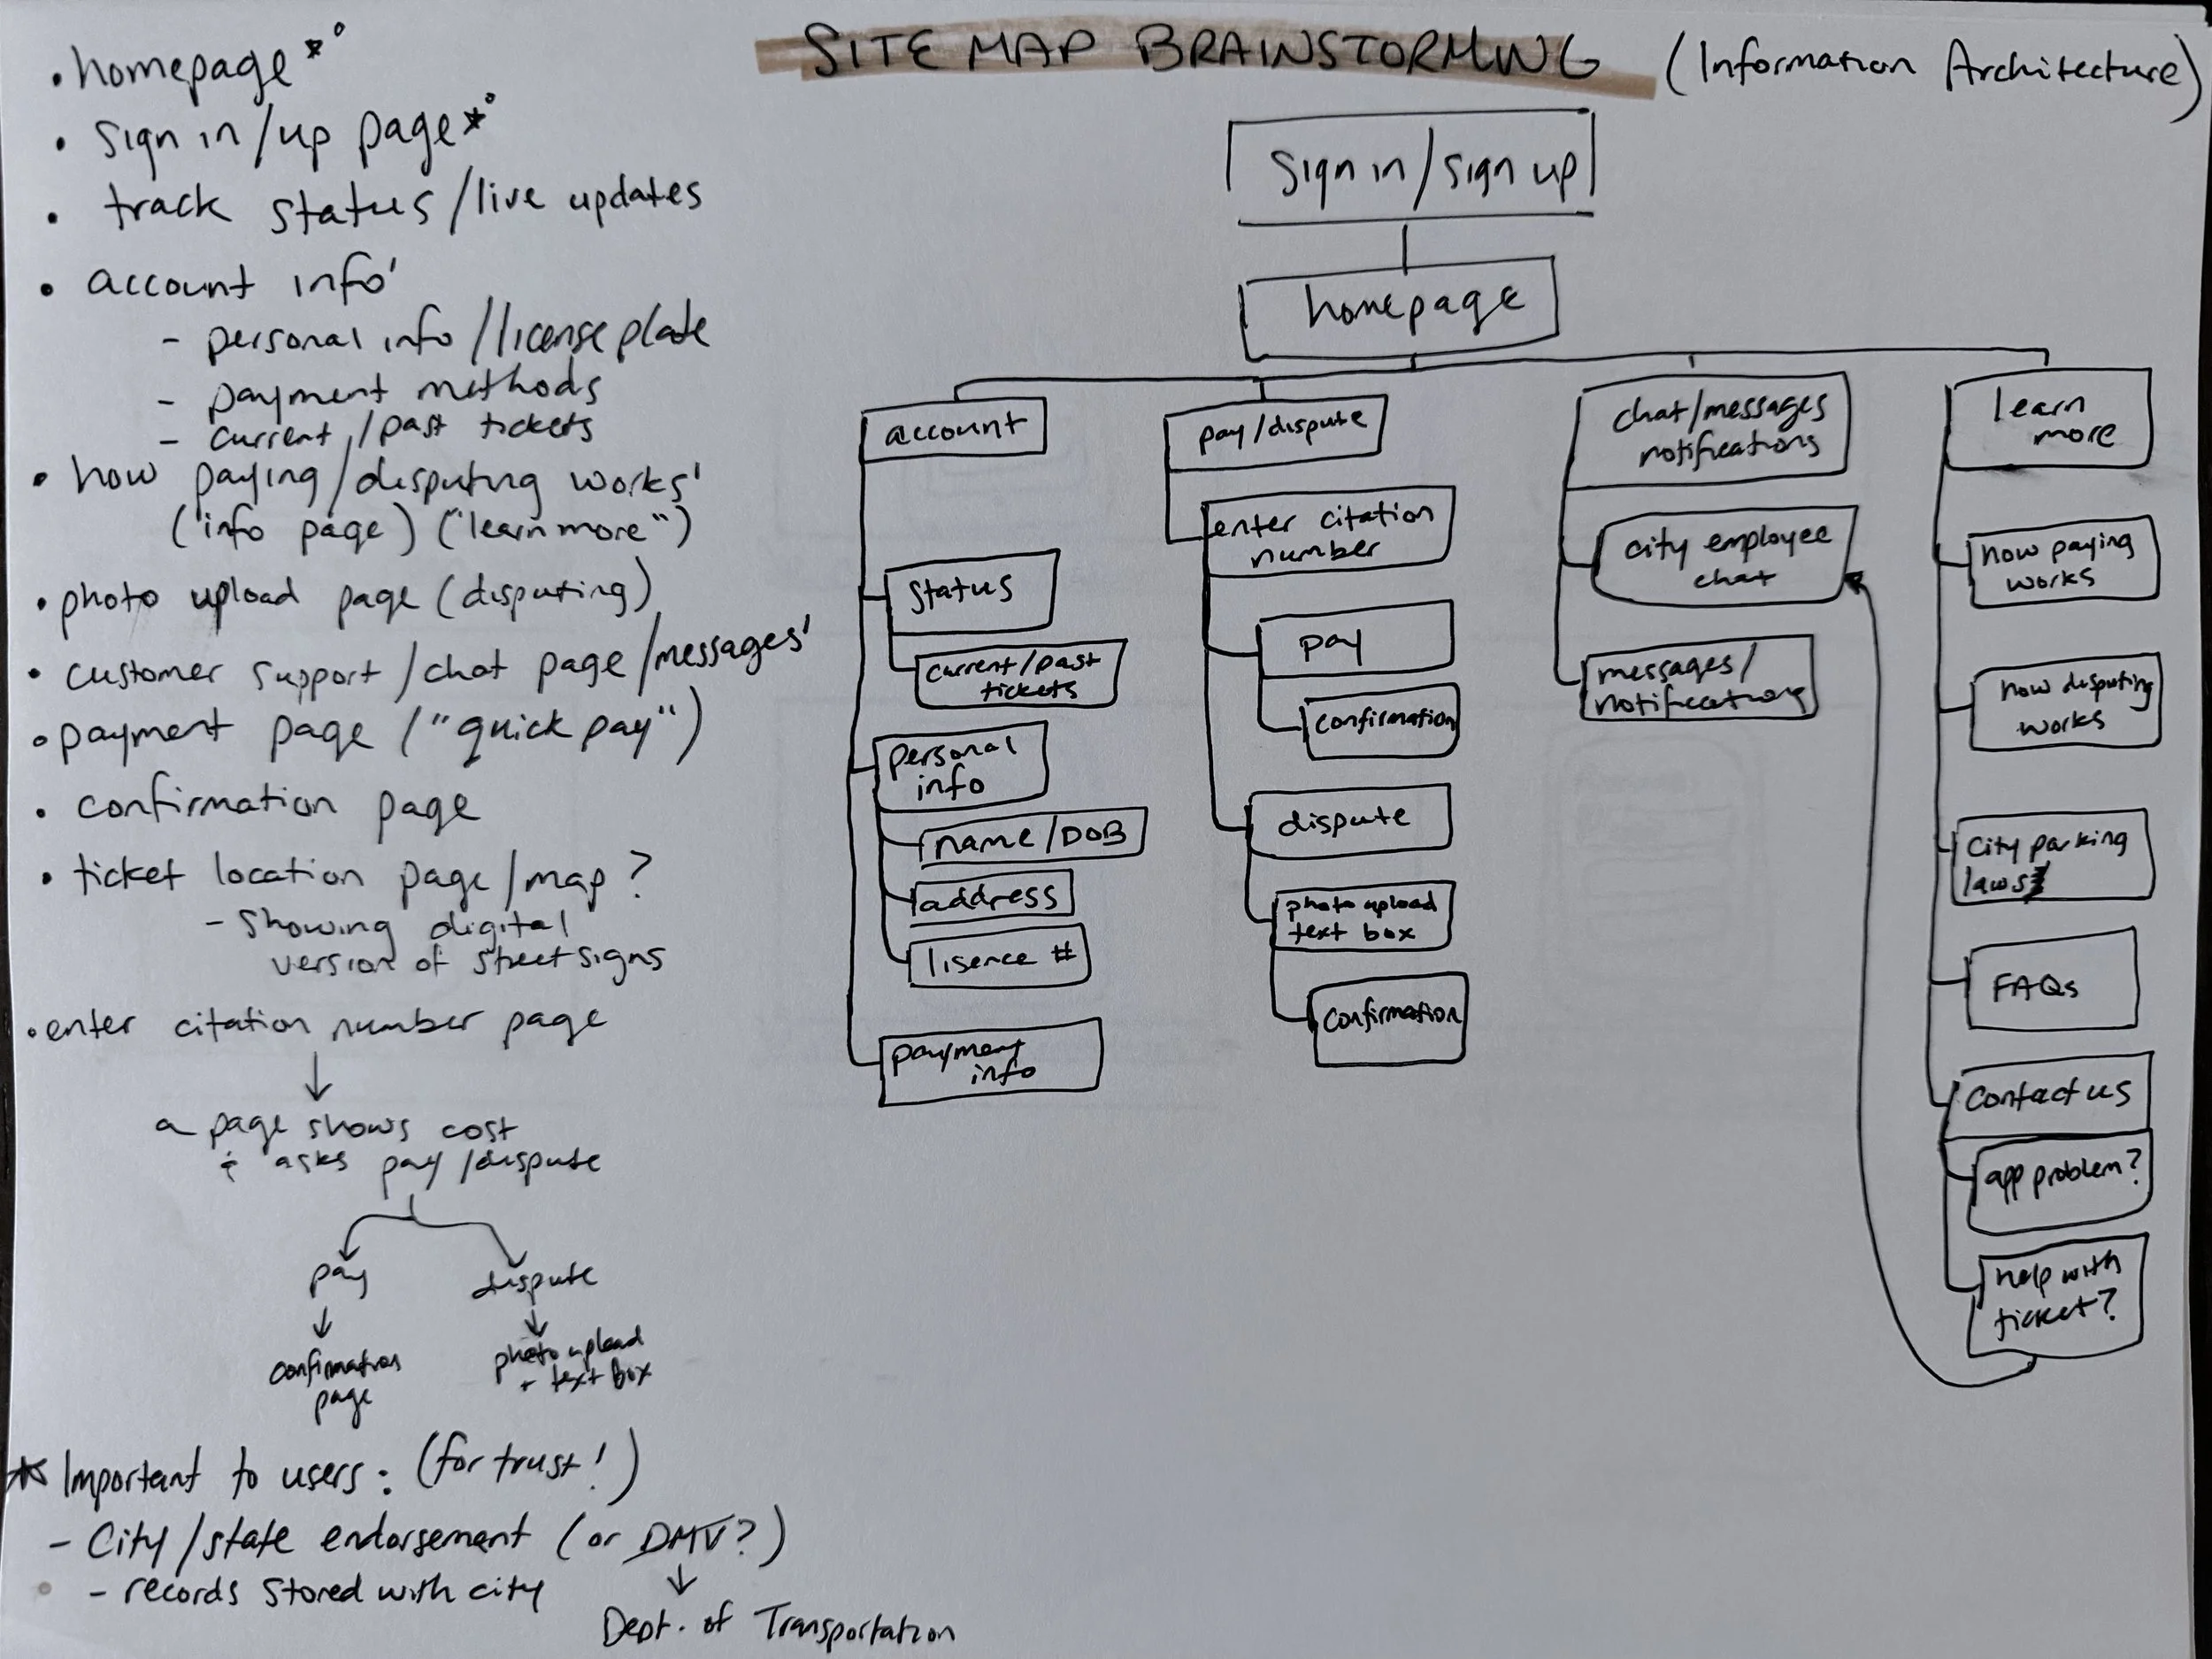 SITE MAP BRAINSTORMING (Information Architecture)
• homepage*°
• sign in/up page*°
• track status/live updates
• account info'
- personal info/license plate
- payment methods
- current/past tickets
• how paying/disputing works'
(info page) ("learn more")
• photo upload page (disputing)
• customer support/chat page/messages'
• payment page ("quick pay")
• confirmation page
• ticket location page/map?
- showing digital
version of street signs
• enter citation number page
↓
a page shows cost
& asks pay/dispute
pay
dispute
↓
↓
confirmation
page
photo upload
+ text box
* Important to users: (for trust!)
- City/state endorsement (or DMV?)
- records stored with city
↓
Dept. of Transportation
Sign in/sign up
homepage
account
status
current/past
tickets
personal
info
name/DOB
address
lisence #
payment
info
pay/dispute
enter citation
number
pay
confirmation
dispute
photo upload
text box
confirmation
chat/messages
notifications
city employee
chat
messages/
notifications
learn
more
how paying
works
how disputing
works
City parking
laws
FAQs
Contact us
app problem?
help with
ticket?